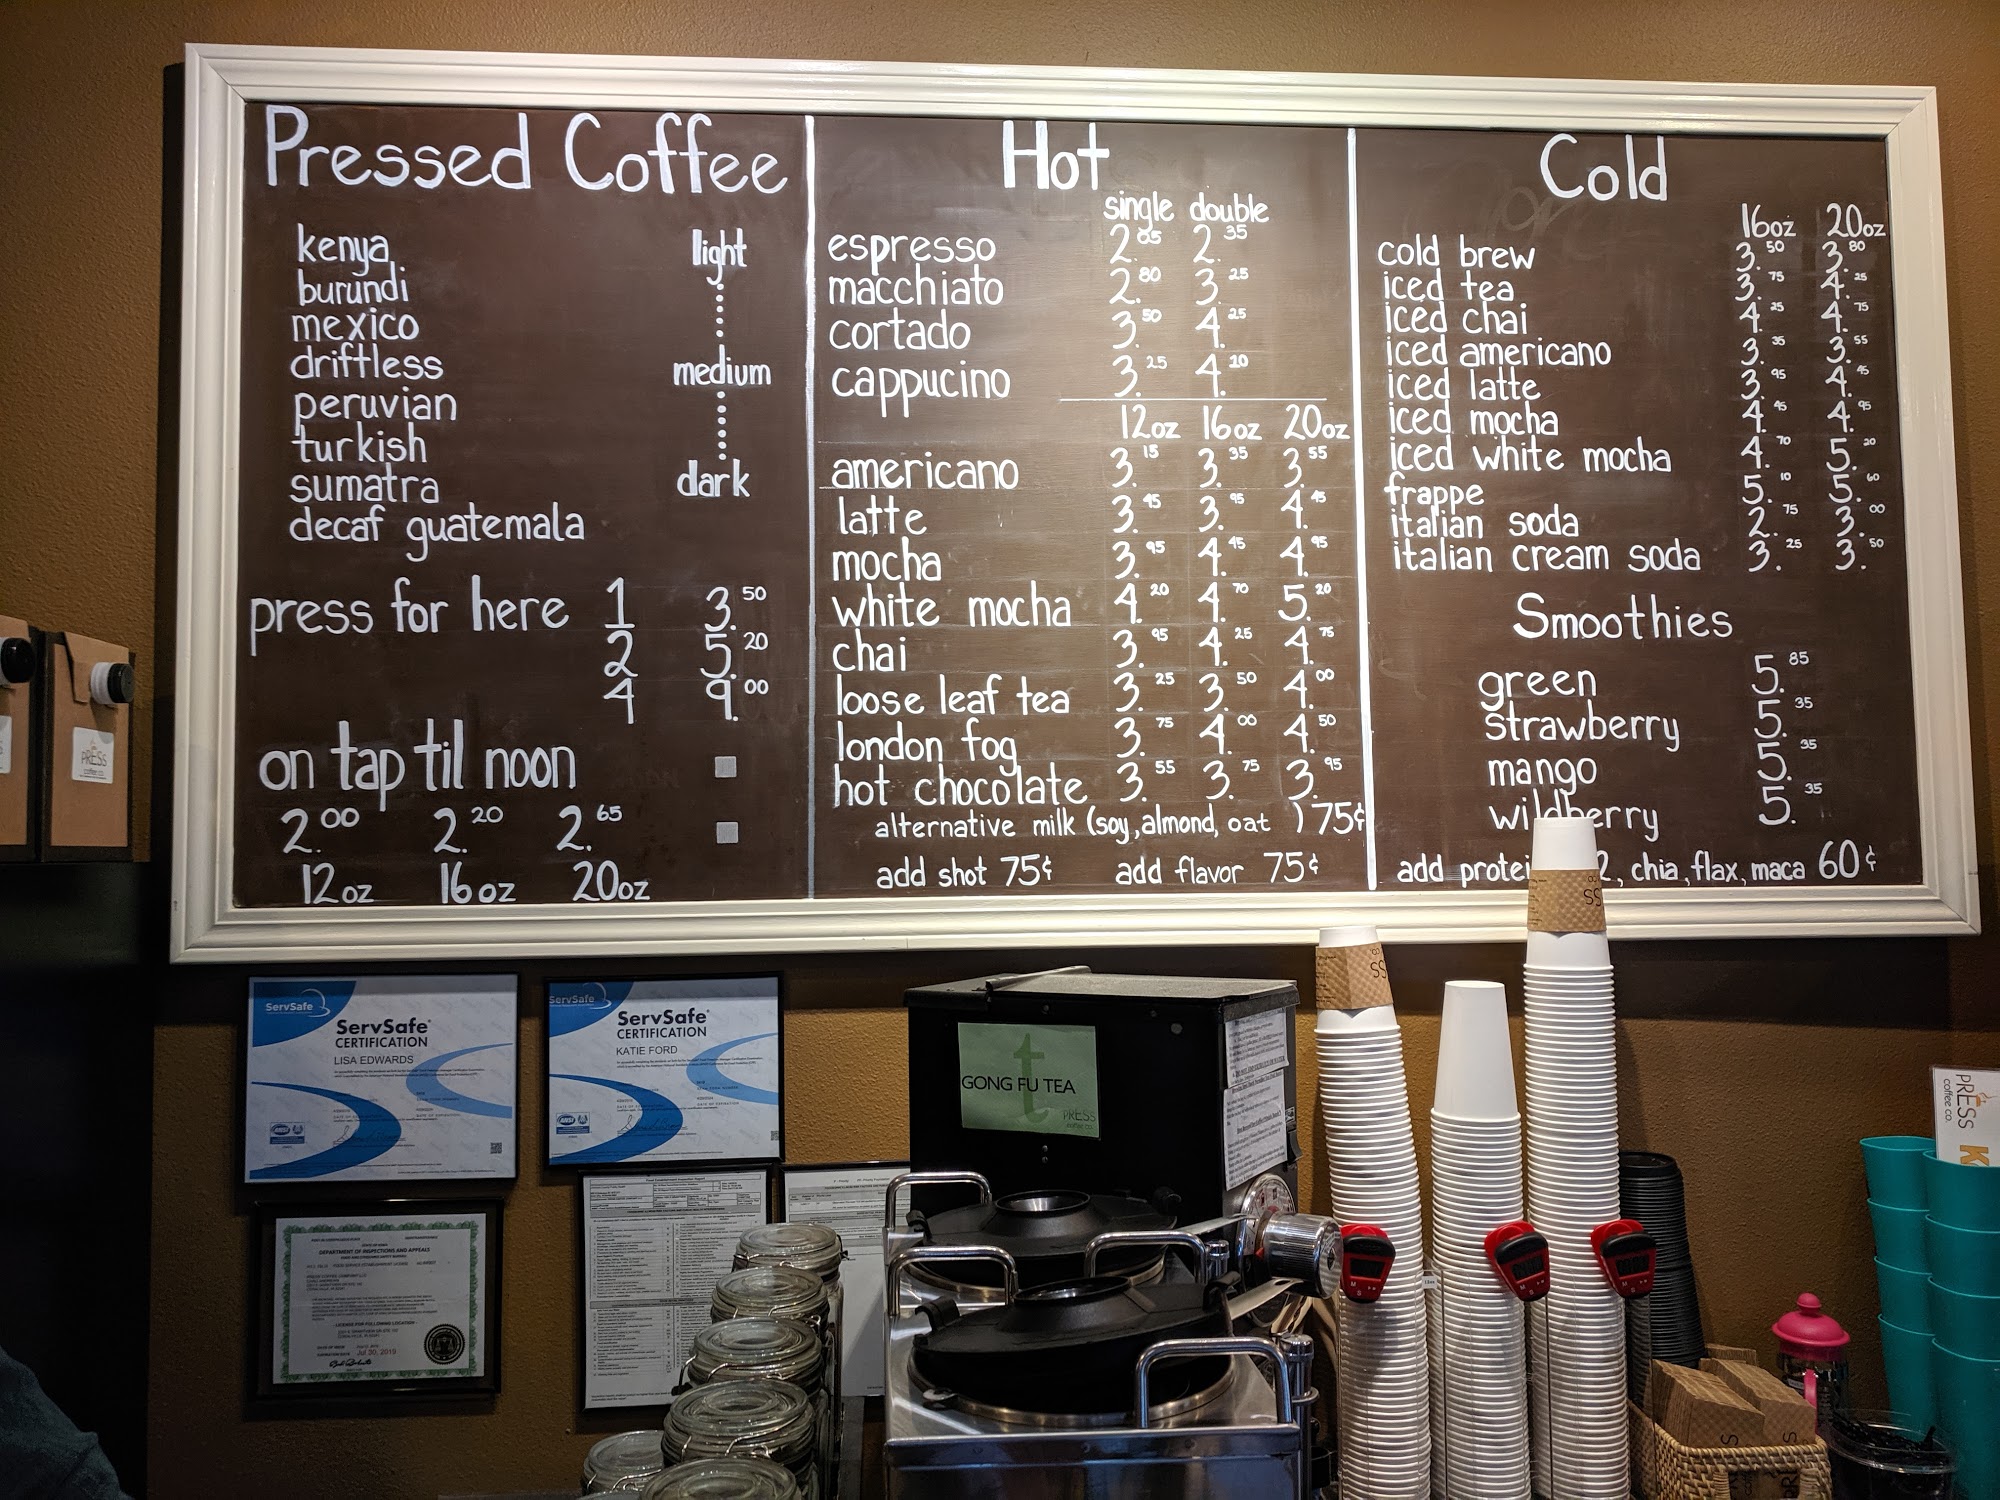 Pressed Coffee
kenya light
burundi
mexico
driftless medium
peruvian
turkish
sumatra dark
decaf guatemala
press for here 1 3.50
2 5.20
4 9.00
on tap til noon
2.00 2.20 2.65
12oz 16oz 20oz
Hot
single double
espresso 2.05 2.35
macchiato 2.80 3.25
cortado 3.50 4.25
cappucino 3.25 4.20
12oz 16oz 20oz
americano 3.15 3.35 3.55
latte 3.45 3.95 4.45
mocha 3.95 4.45 4.95
white mocha 4.20 4.70 5.20
chai 3.95 4.25 4.75
loose leaf tea 3.25 3.50 4.00
london fog 3.75 4.00 4.50
hot chocolate 3.55 3.75 3.95
alternative milk (soy, almond, oat ) 75¢
add shot 75¢ add flavor 75¢
Cold
16oz 20oz
cold brew 3.50 3.80
iced tea 3.75 4.25
iced chai 4.25 4.75
iced americano 3.35 3.55
iced latte 3.95 4.45
iced mocha 4.45 4.95
iced white mocha 4.70 5.20
frappe 5.10 5.60
italian soda 2.75 3.00
italian cream soda 3.25 3.50
Smoothies
green 5.85
strawberry 5.35
mango 5.35
wildberry 5.35
add chia, flax, maca 60¢
PRESS
coffee co.
ServSafe
ServSafe
CERTIFICATION
LISA EDWARDS
ServSafe
ServSafe
CERTIFICATION
KATIE FORD
DEPARTMENT OF INSPECTIONS AND APPEALS
LICENSE FOR FOLLOWING LOCATION
Jul 30, 2019
t
GONG FU TEA
PRESS
coffee co.
PRESS
coffee co.